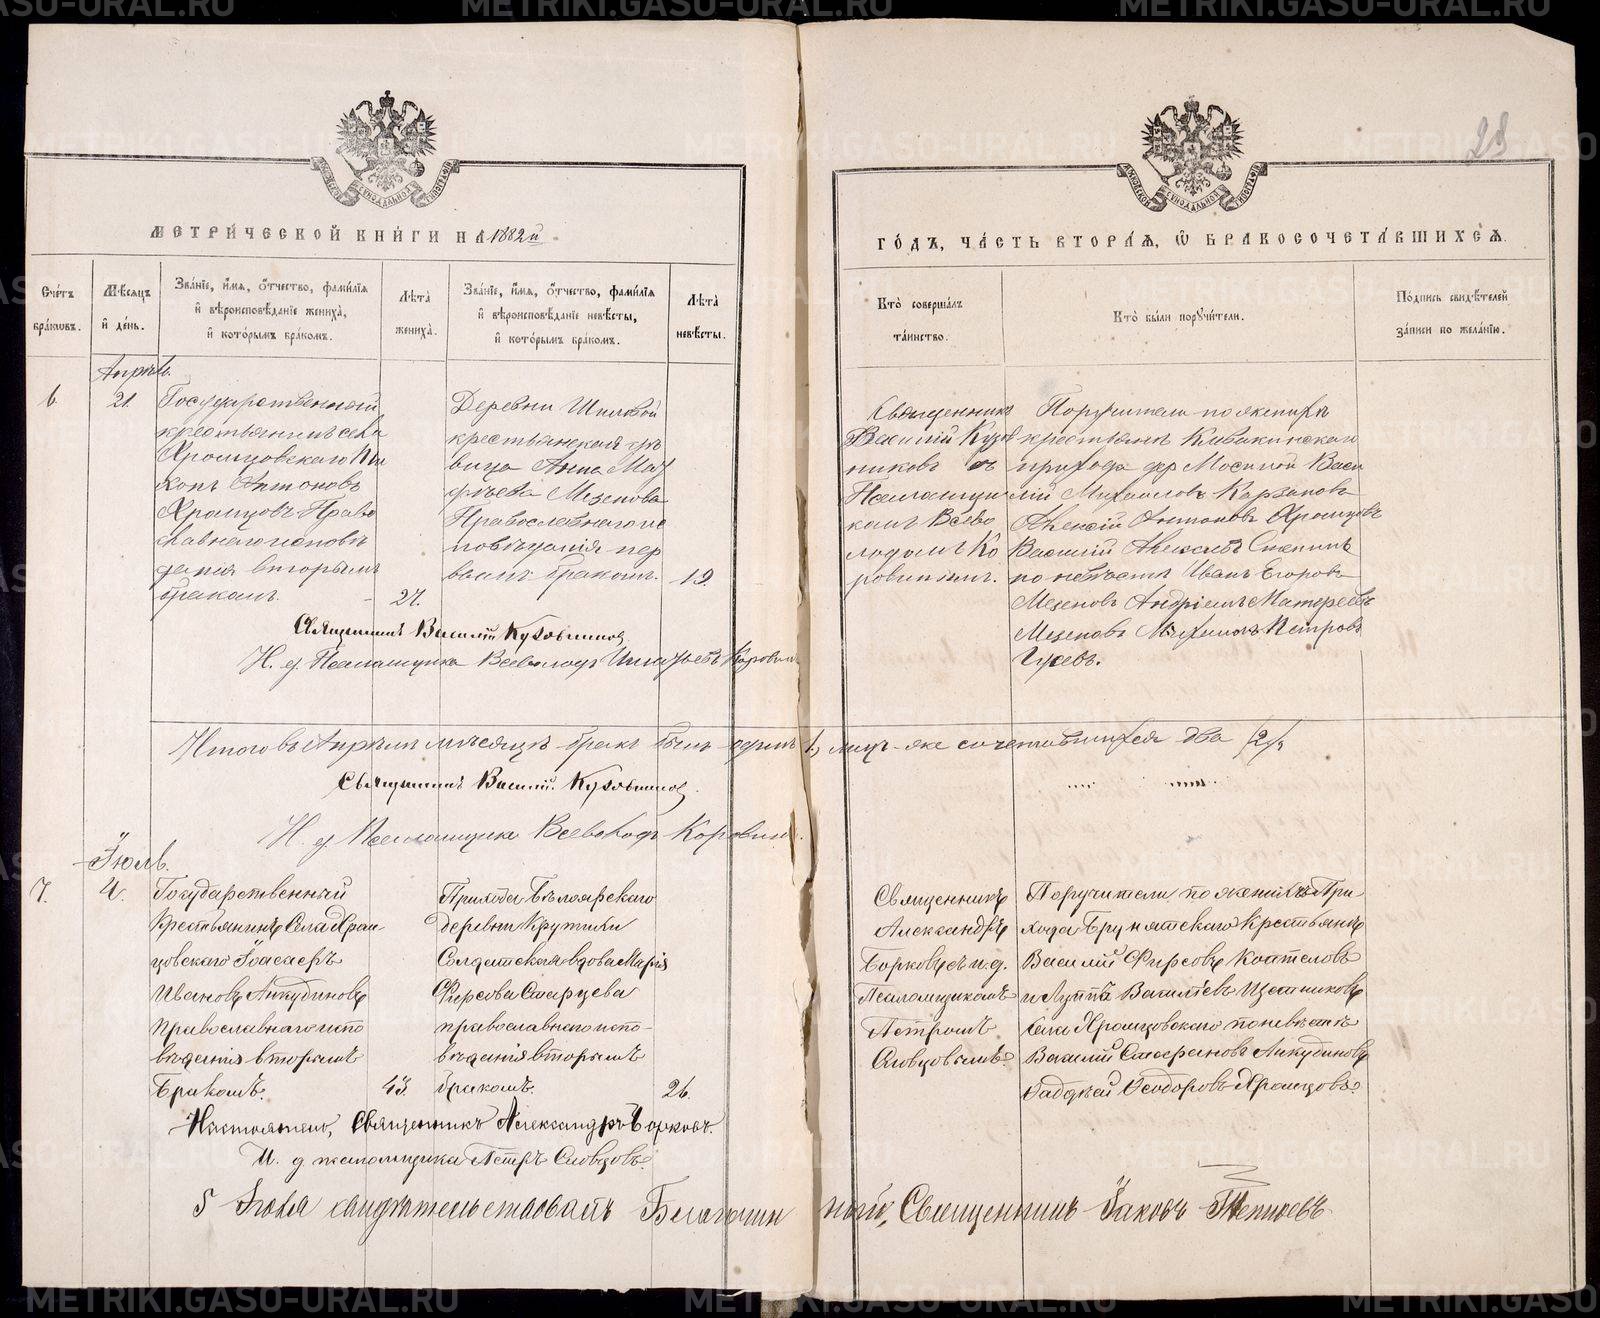 METRIKI.GASO-URAL.RU
23
МЕТРИЧЕСКОЙ КНИГИ НА 1882й
ГОДЪ, ЧАСТЬ ВТОРАЯ, Ѡ БРАКОСОЧЕТАВШИХСЯ.
Счетъ браковъ.
Мѣсяцъ и день.
Званіе, имя, отчество, фамилія
и вѣроисповѣданіе жениха,
и которымъ бракомъ.
Лѣта жениха.
Званіе, имя, отчество, фамилія
и вѣроисповѣданіе невѣсты,
и которымъ бракомъ.
Лѣта невѣсты.
Кто совершалъ
таинство.
Кто были поручители.
Подпись свидѣтелей
записи по желанію.
Апрѣль.
6.
21.
Государственный
крестьянинъ села
Хромцовскаго
Антоновъ
Хромцовъ Право
славнаго исповѣ
данія вторымъ
бракомъ.
27.
Деревни Шиловой
крестьянская дѣ
вица Анна Мат
фѣева Мезенова
Православнаго ис
повѣданія пер
вымъ бракомъ.
19.
Священникъ
Василій Кузов
никовъ съ
Псаломщи
комъ Всево
лодомъ Ко
ровинымъ.
Поручители по женихѣ
крестьяне
прихода дер Мосиной Васи
лій Михаиловъ
Алексій Антоновъ Хромцовъ
Василій
по невѣстѣ Иванъ Егоровъ
Мезеновъ Андрей Матфеевъ
Мезеновъ Петровъ
Гусевъ.
Священникъ Василій Кузовниковъ
И. д. Псаломщика Всеволодъ Коровинъ
Итого въ Апрѣлѣ мѣсяцѣ бракъ былъ одинъ 1, лицъ же сочетавшихся два /2/.
Священникъ Василій Кузовниковъ.
И. д. Псаломщика Всеволодъ Коровинъ.
Іюль.
7.
4.
Государственный
Крестьянинъ Села Хром
цовскаго Іоасафъ
Ивановъ Анкудиновъ
Православнаго испо
вѣданія вторымъ
бракомъ.
43.
Прихода Бѣлоярскаго
деревни Крутихи
Солдатская вдова Марія
Фирсова Старцева
православнаго испо-
вѣданія вторымъ
бракомъ.
26.
Священникъ
Александръ
Борковъ съ и. д.
Псаломщикомъ
Петромъ
Словцовымъ.
Поручители по женихѣ При
хода Бруснятскаго Крестьяне
Василій Фирсовъ
и Луппъ Васильевъ
Села Хромцовскаго по невѣстѣ
Василій Стефановъ Анкудиновъ
Фаддѣй Ѳеодоровъ Хромцовъ.
Священникъ Александръ Борковъ.
И. д. псаломщика Петръ Словцовъ.
5 Іюля свидѣтельствовалъ Благочин
ный, Священникъ Іаковъ